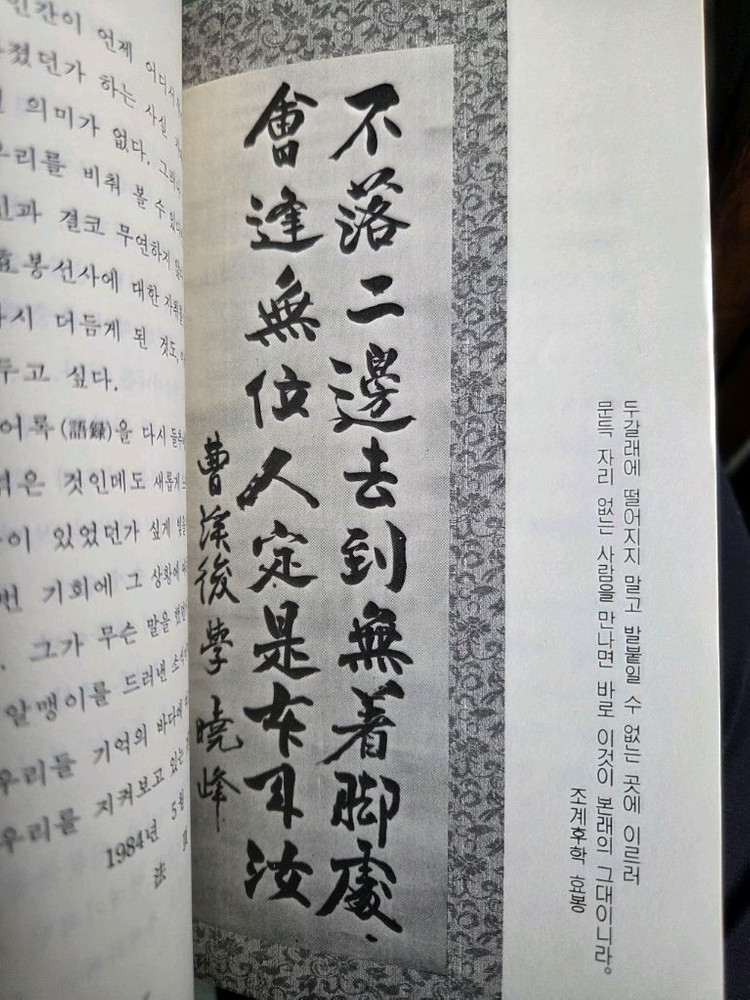 인간이 언제 어디서
졌던가 하는 사실
의미가 없다. 그러
우리를 비춰 볼 수 있
과 결코 무연하지 않
효봉선사에 대한 자취를
다시 더듬게 된 것도,
두고 싶다.
어록(語錄)을 다시 들추
은 것인데도 새롭게
이 있었던가 싶게 빛을
번 기회에 그 상황에
. 그가 무슨 말을 했
알맹이를 드러낸 소식
우리들 기억의 바다에
우리를 지켜보고 있는
1984년 5월
法
不落二邊去到無着脚處
會逢無位人定是本來汝
曹溪後學 曉峰
두갈래에 떨어지지 말고 발붙일 수 없는 곳에 이르러
문득 자리 없는 사람을 만나면 바로 이것이 본래의 그대이니라。
조계후학 효봉